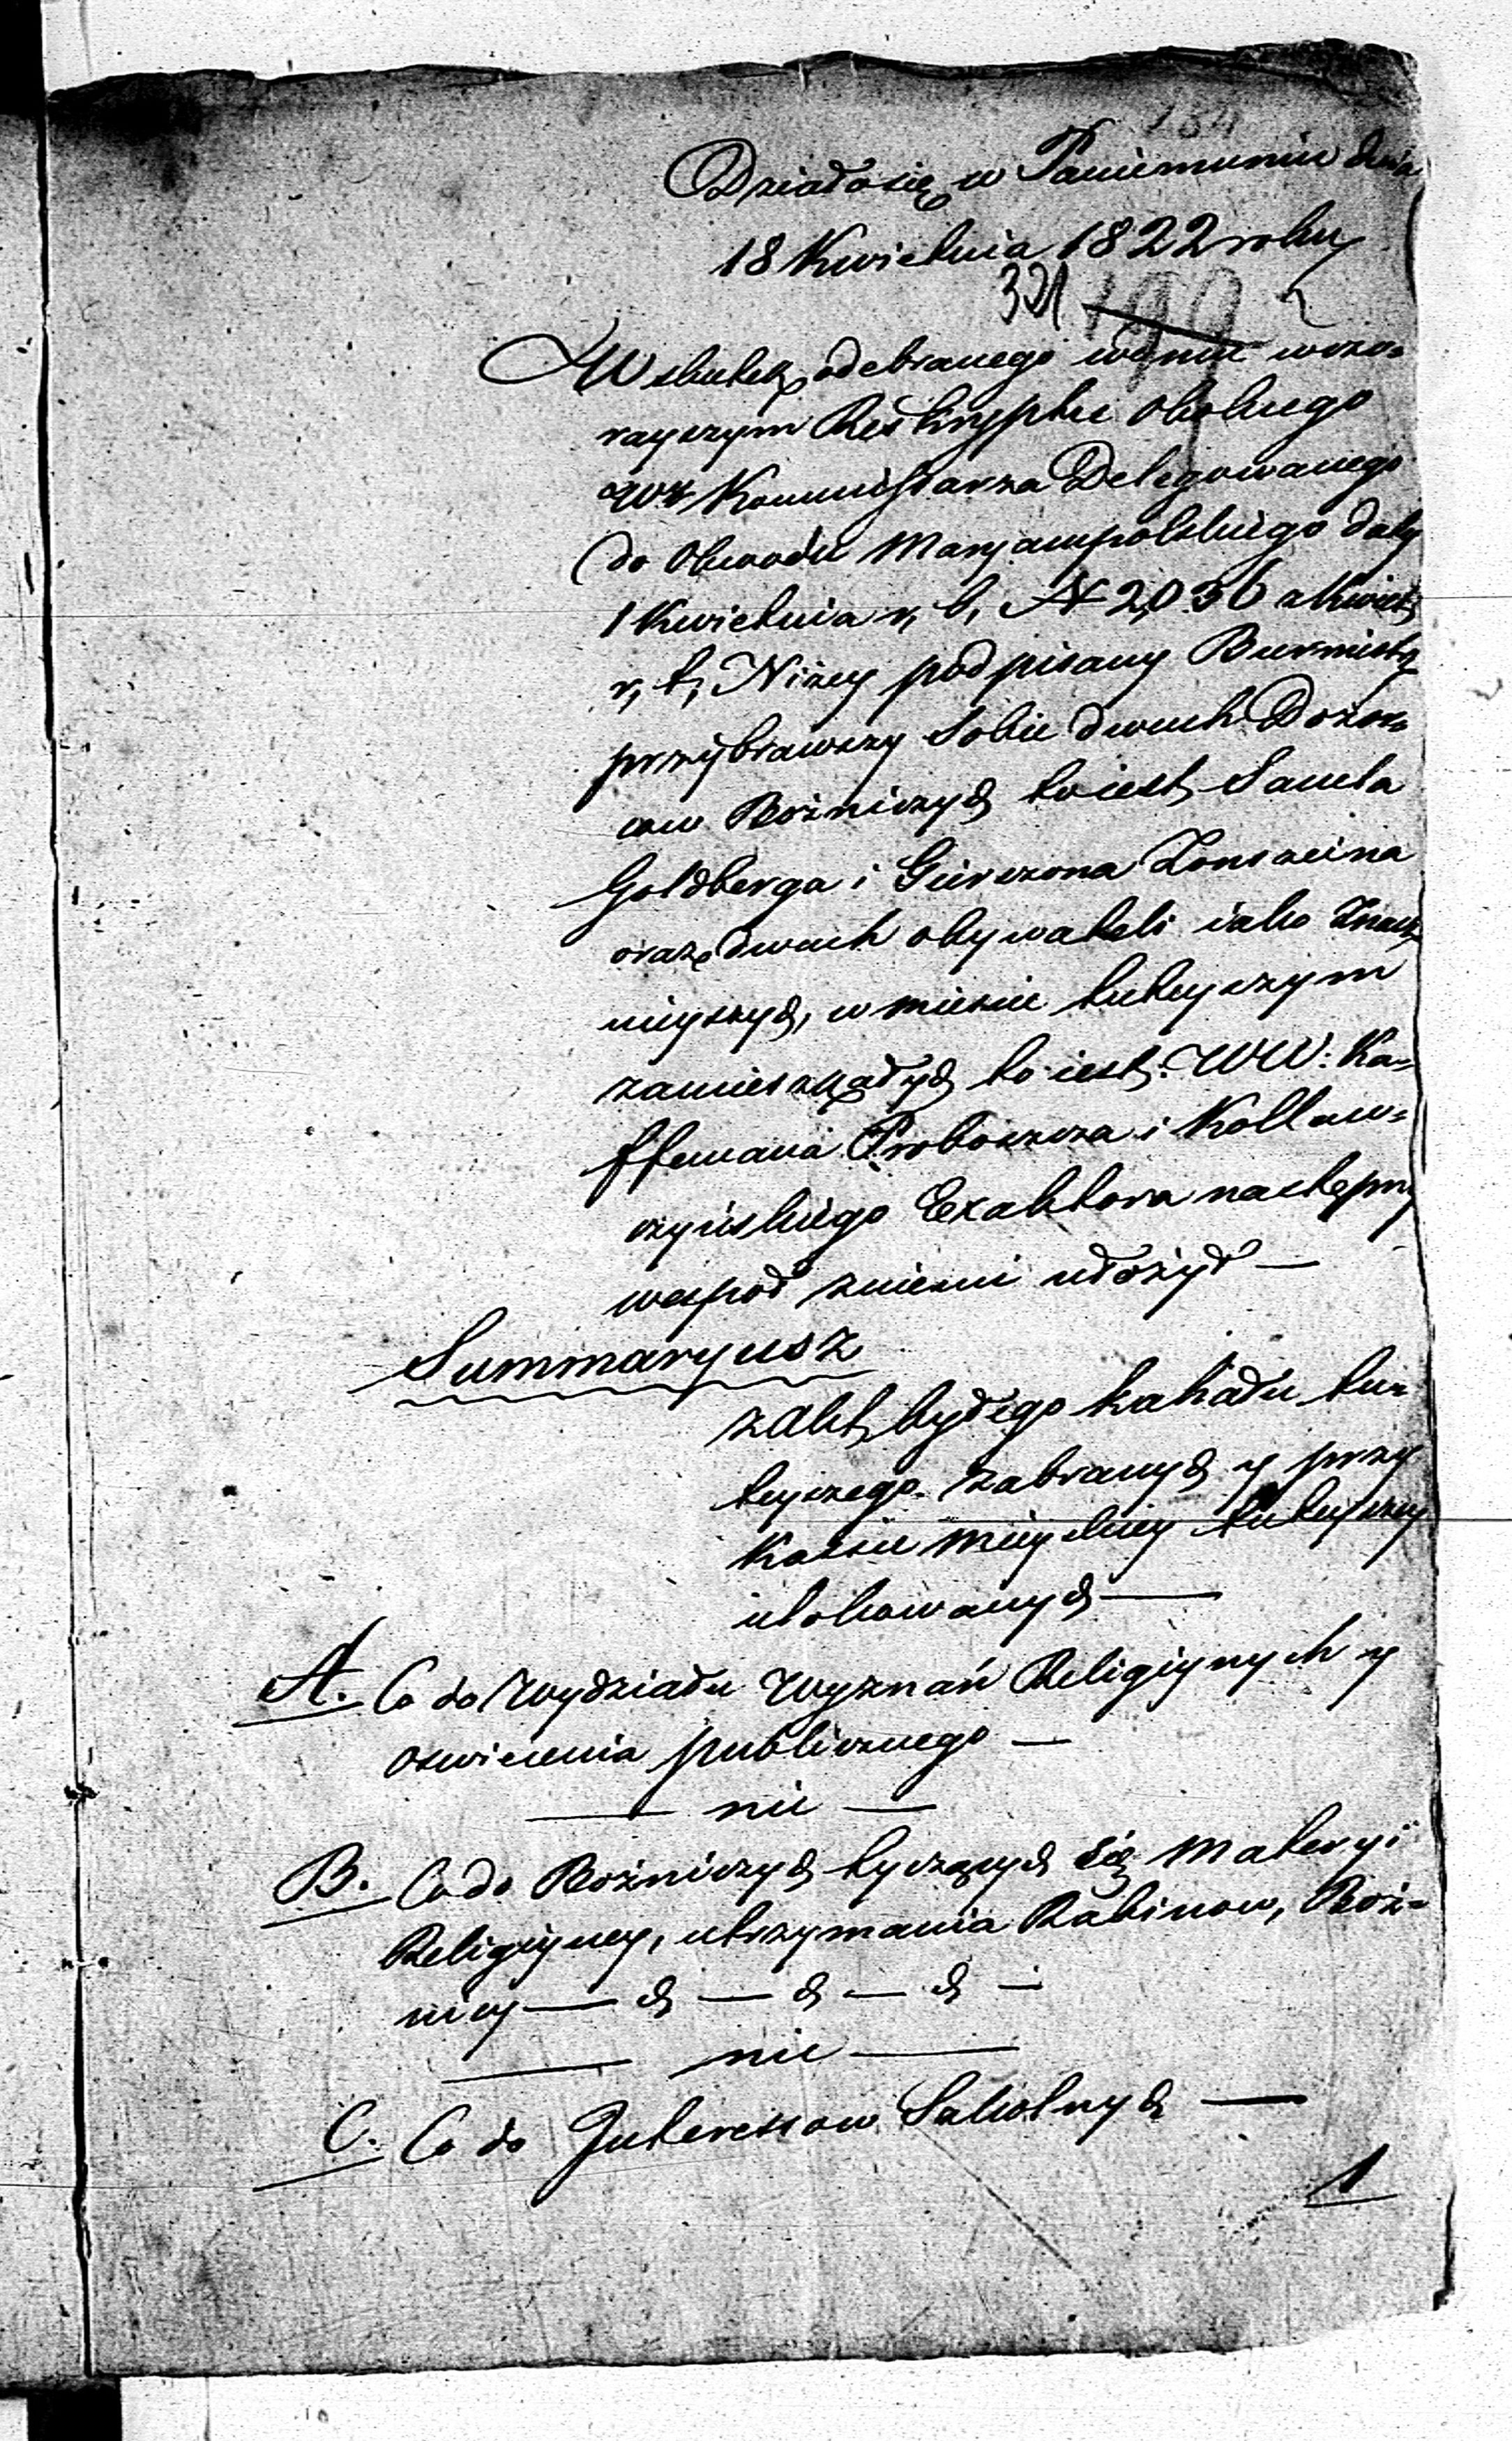 184
Działo się w Paniemuniu dnia
18 Kwietnia 1822 roku
321 199
W skutek odebranego w dniu wczo-
rayszym Reskryptu Obolnego
WW Kommissarza Delegowanego
do Obwodu Maryampolskiego daty
1 Kwietnia r, b, N 2036 z Kwiet,
r, b, Niżey podpisany Burmistrz
przybrawszy Sobie dwuch Dozor-
cow Bożniczych to iest, Samela
Goldberga i Gierszona Zonszeina
oraz dwuch obywateli iako Znacz
nieyszych, w mieście tuteyszym
zamieszkałych to iest: WW: Ka-
ffemana Proboszcza i Kollaw-
czyńskiego Exaktora następny
wespoł zniemi ułożył —
Summaryusz
z Akt, byłego kahału tu-
teyszego zabranych y przy
Kassie mieyskiey tuteyszey
ulokowanych —
A. Co do Wydziału Wyznań Religiynych y
oswiecenia publicznego —
— nic —
B. Co do Bożniczych tyczących się materyi
Religiyney, utrzymania Rabinow, Boż-
nicy — & — & — & —
— nic —
C. Co do Interessow Szkolnych —
1